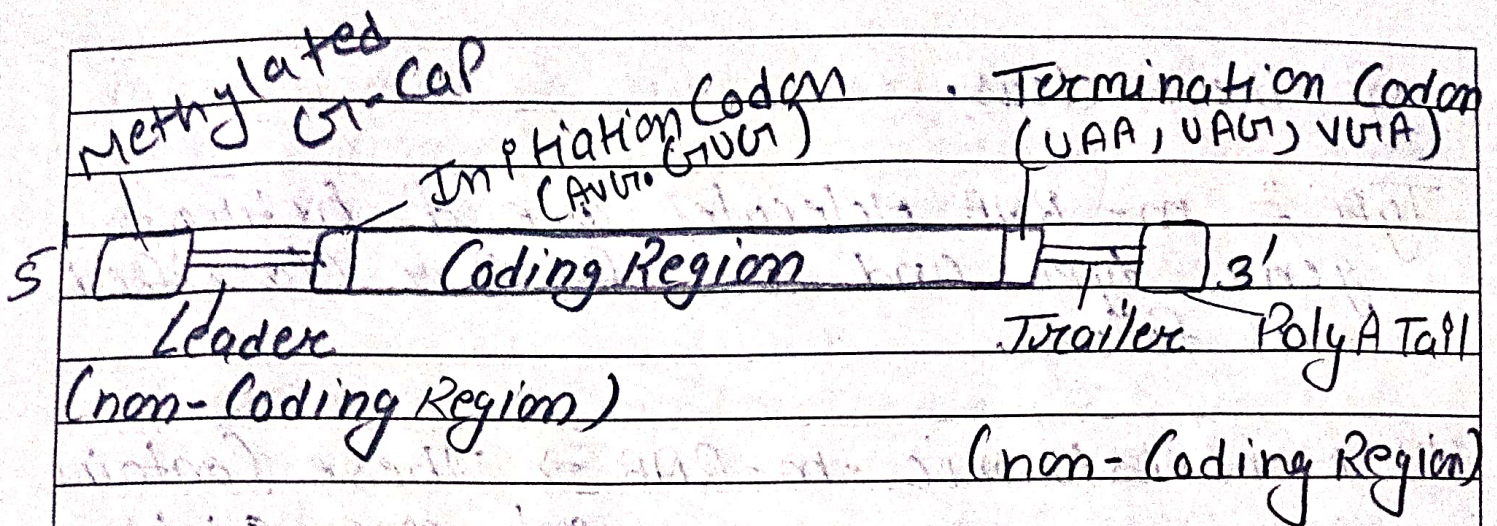 Methylated
G-Cap
Initiation Codon
(AUG. GUG)
Termination Codon
(UAA, UAG, UGA)
5
Coding Region
3'
Leader
Trailer
Poly A Tail
(non-Coding Region)
(non-Coding Region)